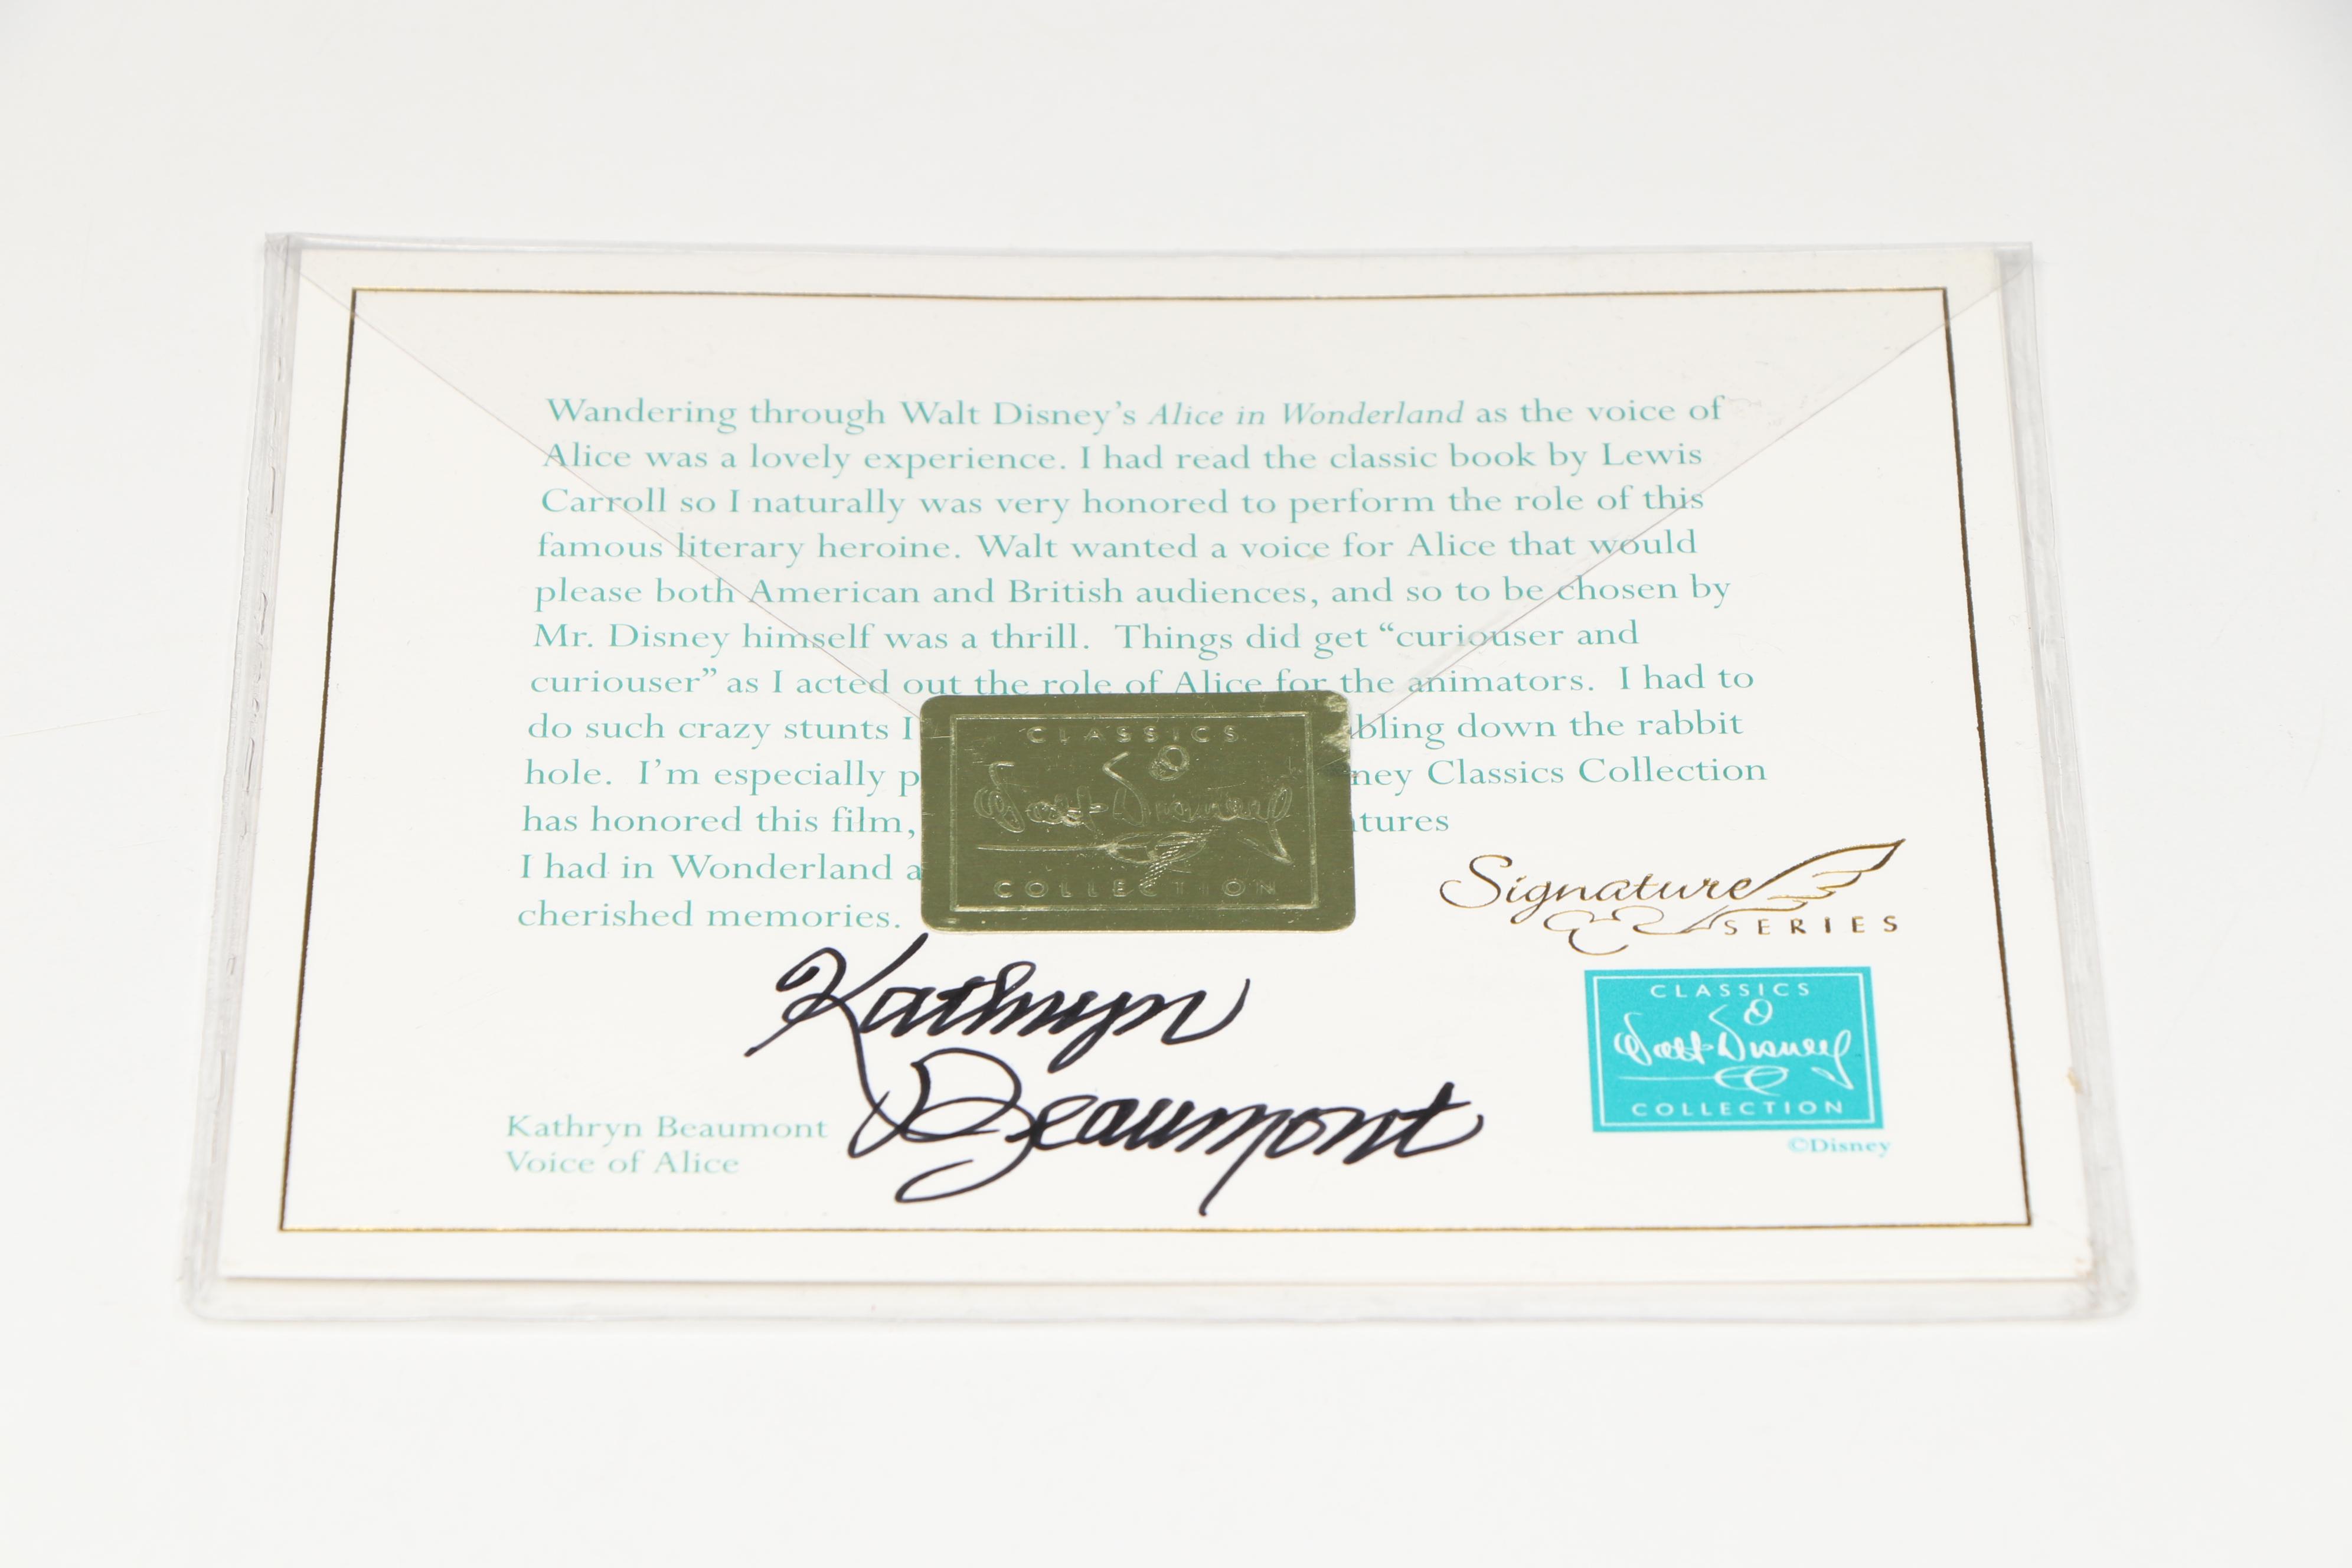 Wandering through Walt Disney’s Alice in Wonderland as the voice of
Alice was a lovely experience. I had read the classic book by Lewis
Carroll so I naturally was very honored to perform the role of this
famous literary heroine. Walt wanted a voice for Alice that would
please both American and British audiences, and so to be chosen by
Mr. Disney himself was a thrill. Things did get “curiouser and
curiouser” as I acted out the role of Alice for the animators. I had to
do such crazy stunts I bling down the rabbit
hole. I’m especially p ney Classics Collection
has honored this film, tures
I had in Wonderland a
cherished memories.
CLASSICS
Walt Disney
COLLECTION
Signature
SERIES
Kathryn
Beaumont
CLASSICS
Walt Disney
COLLECTION
©Disney
Kathryn Beaumont
Voice of Alice